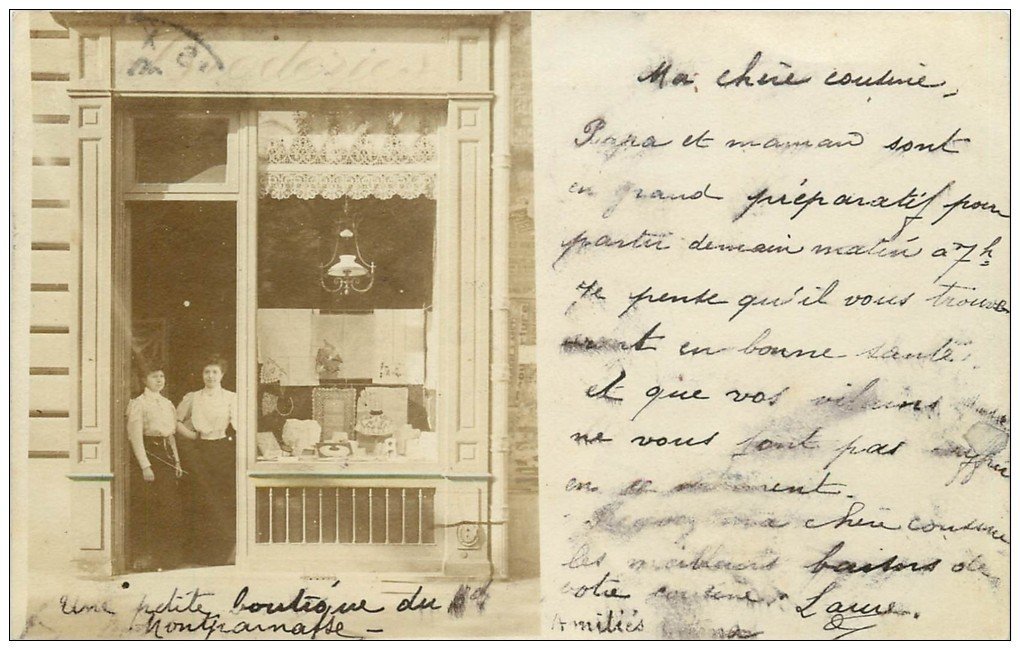 Broderie
Ma chère cousine,
Papa et maman sont
en grand préparatif pour
partir demain matin à 7h
Je pense qu'il vous trouve
ront en bonne santé
et que vos vilains
ne vous font pas
en ce moment.
Recevez ma chère cousine
les meilleurs baisers de
votre cousine. Laure.
Amitiés
Une petite boutique du Bd
Montparnasse –